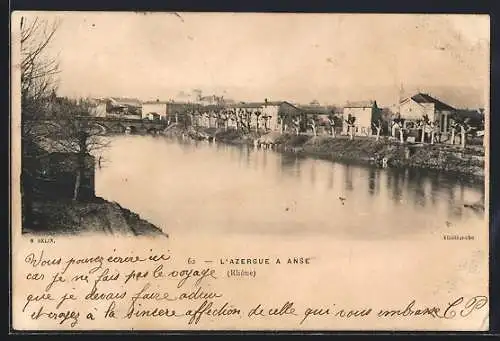 B. SELIN.
Villefranche
62 — L'AZERGUE A ANSE
(Rhône)
Vous pouvez écrire ici
car je ne fais pas le voyage
que je devais faire adieu
et croyez à la sincère affection de celle qui vous embrasse CP